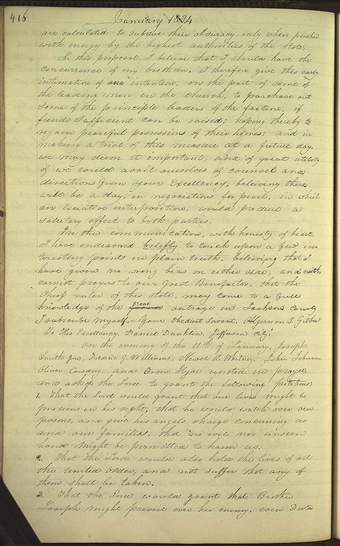 416 January 1834
are calculated to subdue their obduracy, only when pushed
with energy by the highest authorities of the State.
In this proposal I believe that I should have the
concurrence of my brethren. I therefore give this early
intimation of our intention, on the part of some of
the leading men in the church, to purchase out
some of the principle leaders of the faction, if
funds sufficient can be raised; hoping thereby to
regain peaceful possession of their homes: and in
making a trial of this measure at a future day
we may deem it important, and of great utility
if we could avail ourselves of counsel and
directions from your Excellency, believing there
will be a day, in negociations for peace, in which
an executive interposition, would produce a
salutary effect to both parties.
In this communication, with honesty of heart
I have endeavored briefly to touch upon a few in-
teresting points in plain truth, believing that I
have given no wrong bias on either side, and with
earnest prayers to our Great Benefactor, that the
Chief ruler of this state, may come to a full
knowledge of the great outrage in Jackson County
I subscribe myself, Your Obedient Servant, Algernon S. Gilbert
To His Excellency, Daniel Dunklin, Jefferson City.
On the evening of the 11th of January, Joseph
Smith jun, Frederic G. Williams, Newel K. Whitney, John Johnson
Oliver Cowdery, and Orson Hyde united in prayer
and asked the Lord to grant the following petitions
1. That the Lord would grant that our lives might be
precious in his sight, that he would watch over our
persons and give his angels charge concerning us
and our families, that no evil nor unseen
hand might be permitted to harm us.
2. That the Lord would also hold the lives of all
the United Order, and not suffer that any of
them shall be taken.
3. That the Lord would grant that Brother
Joseph might prevail over his enemy, even Doctor